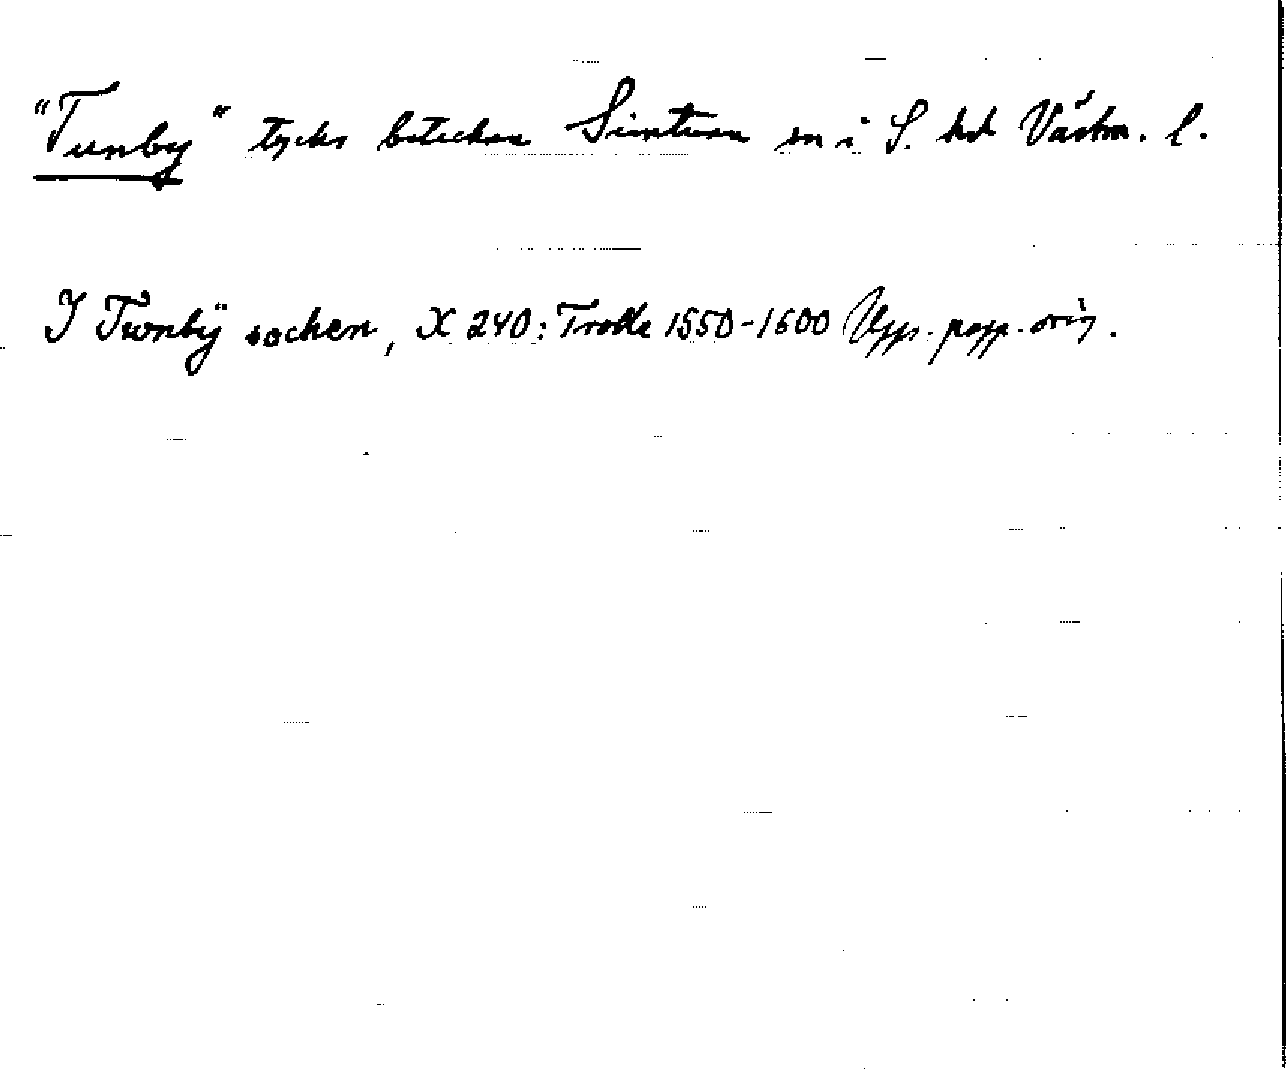 "Tunby" tycks beteckna Simtuna sn i S. hd Västm. l.
I Twnbÿ sochen, X 240: Trolle 1550-1600 Upps. papp. orig.